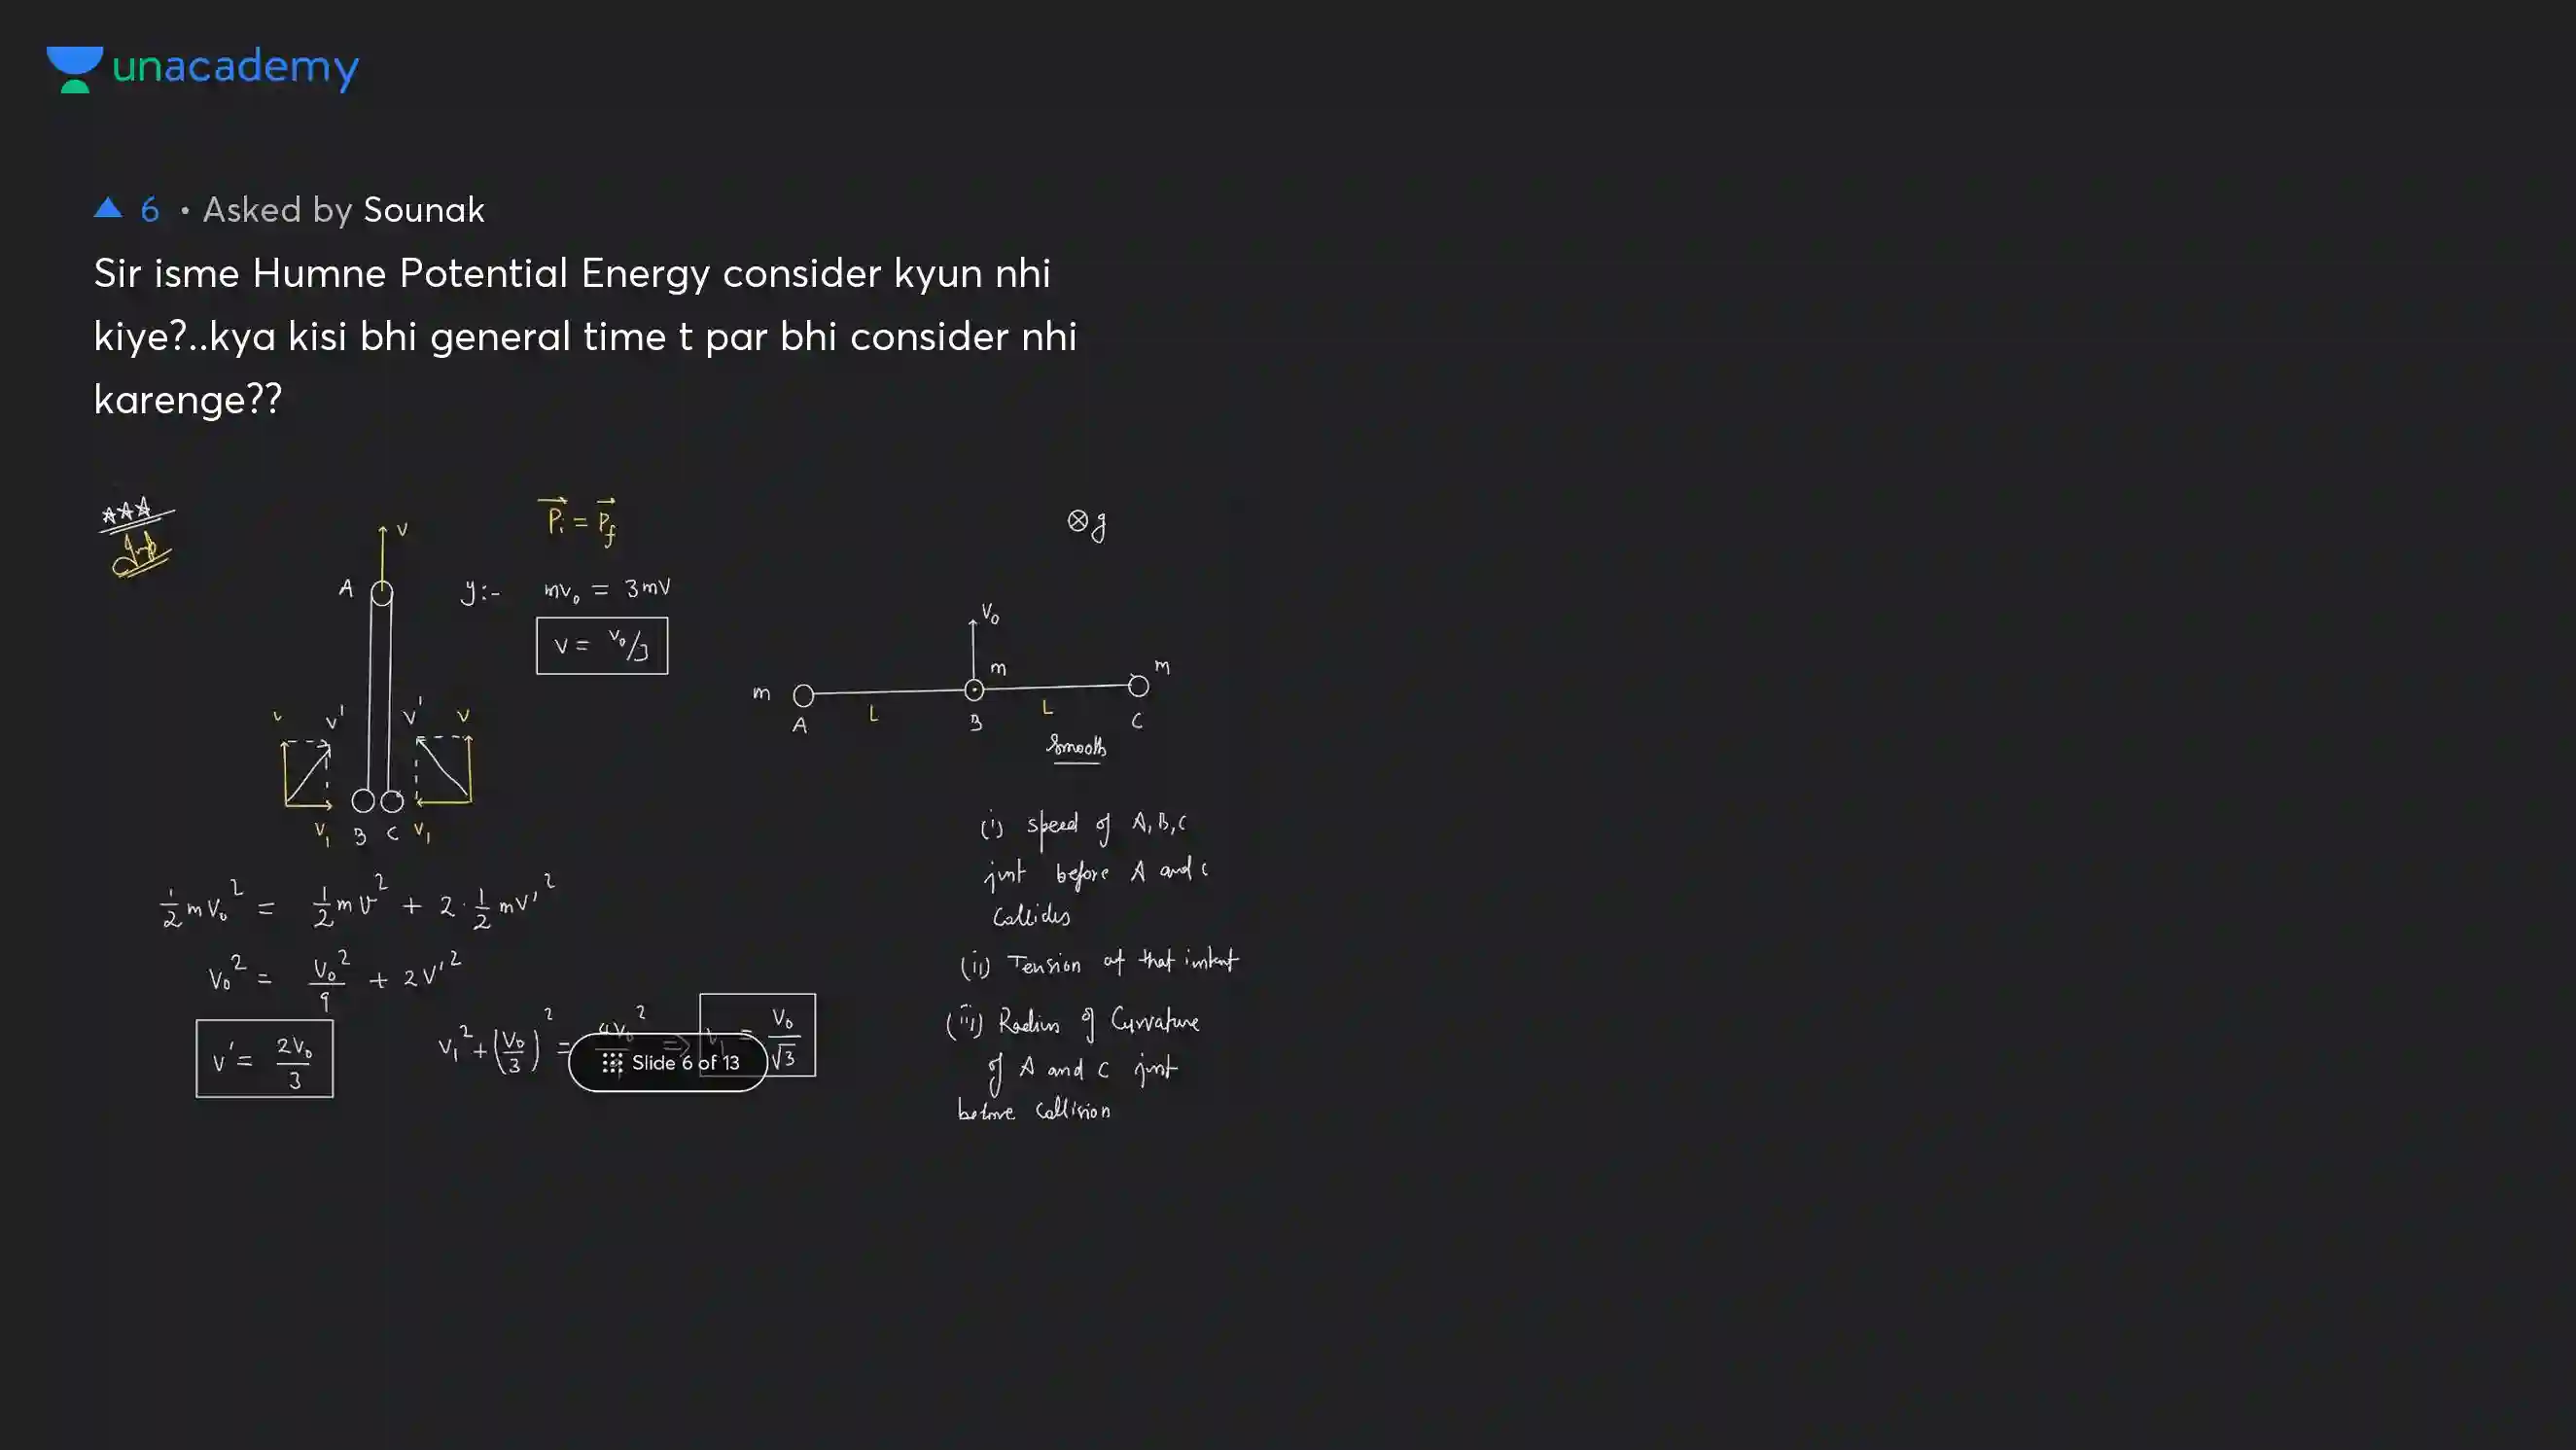 unacademy
6 • Asked by Sounak
Sir isme Humne Potential Energy consider kyun nhi
kiye?..kya kisi bhi general time t par bhi consider nhi
karenge??
Imp
v
A
P⃗i = P⃗f
y:- mv₀ = 3mv
v = v₀/3
v v' v' v
v₁ B C v₁
½mv₀² = ½mv² + 2·½mv'²
v₀² = v₀²/9 + 2v'²
v' = 2v₀/3
v₁² + (v₀/3)² = 4v₀² ⇒ v₁ = v₀/√3
Slide 6 of 13
⊗g
v₀
m m m
A L B L C
Smooth
(i) Speed of A, B, C
just before A and C
Collides
(ii) Tension at that instant
(iii) Radius of Curvature
of A and C just
before Collision